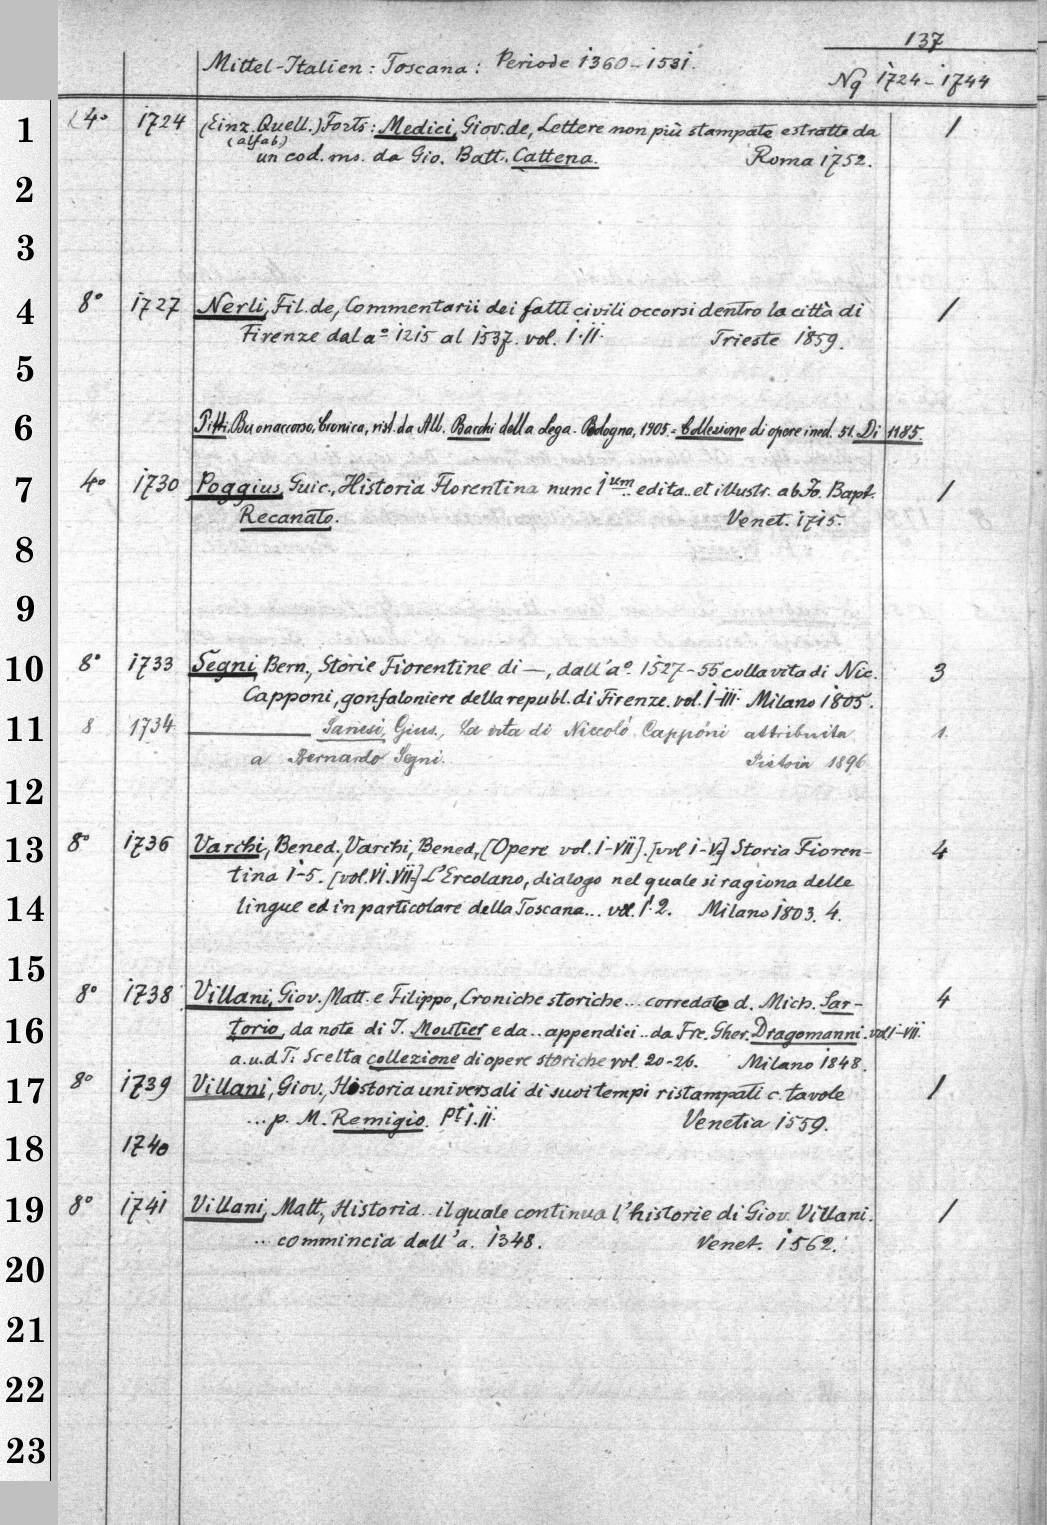 137
Mittel-Italien: Toscana: Periode 1360-1531.
Nq 1724-1744
1 4° 1724 (Einz. Quell.) Forts: Medici, Giov. de, Lettere non più stampate estratte da 1
(alfab)
un cod. ms. da Gio. Batt. Cattena. Roma 1752.
2
3
4 8° 1727 Nerli, Fil. de, Commentarii dei fatti civili occorsi dentro la città di 1
Firenze dal a° 1215 al 1537. vol. I.II. Trieste 1859.
5
6 Pitti, Buonaccorso, Cronica, rist. da Alb. Bacchi della Lega. Bologna, 1905. = Collezione di opere ined. 51. Di 1185.
7 4° 1730 Poggius, Guic., Historia Florentina nunc 1um edita.. et illustr. ab Jo. Bapt. 1
Recanato. Venet. 1715.
8
9
10 8° 1733 Segni, Bern., Storie Fiorentine di —, dall'a° 1527-55 colla vita di Nic. 3
Capponi, gonfaloniere della republ. di Firenze. vol. I-III. Milano 1805.
11 8 1734 —— Sanesi, Gius., La vita di Niccolò Capponi attribuita 1.
a Bernardo Segni. Pistoia 1896
12
13 8° 1736 Varchi, Bened., Varchi, Bened., [Opere vol. I-VII]. [vol I-V.] Storia Fioren- 4
tina 1-5. [vol. VI. VII=] L'Ercolano, dialogo nel quale si ragiona delle
14 lingue ed in particolare della Toscana... vol. 1.2. Milano 1803. 4.
15
8° 1738 Villani, Giov. Matt. e Filippo, Croniche storiche... corredate d. Mich. Sar- 4
16 torio, da note di I. Moutier e da.. appendici.. da Frc. Gher. Dragomanni. vol I-VII.
a.u.d.T: Scelta collezione di opere storiche vol. 20-26. Milano 1848.
17 8° 1739 Villani, Giov., Historia universali di suoi tempi ristampati c. tavole 1
... p. M. Remigio. Pt I.II. Venetia 1559.
18 1740
19 8° 1741 Villani, Matt., Historia.. il quale continua l'historie di Giov. Villani. 1
... commincia dall'a. 1348. Venet. 1562.
20
21
22
23